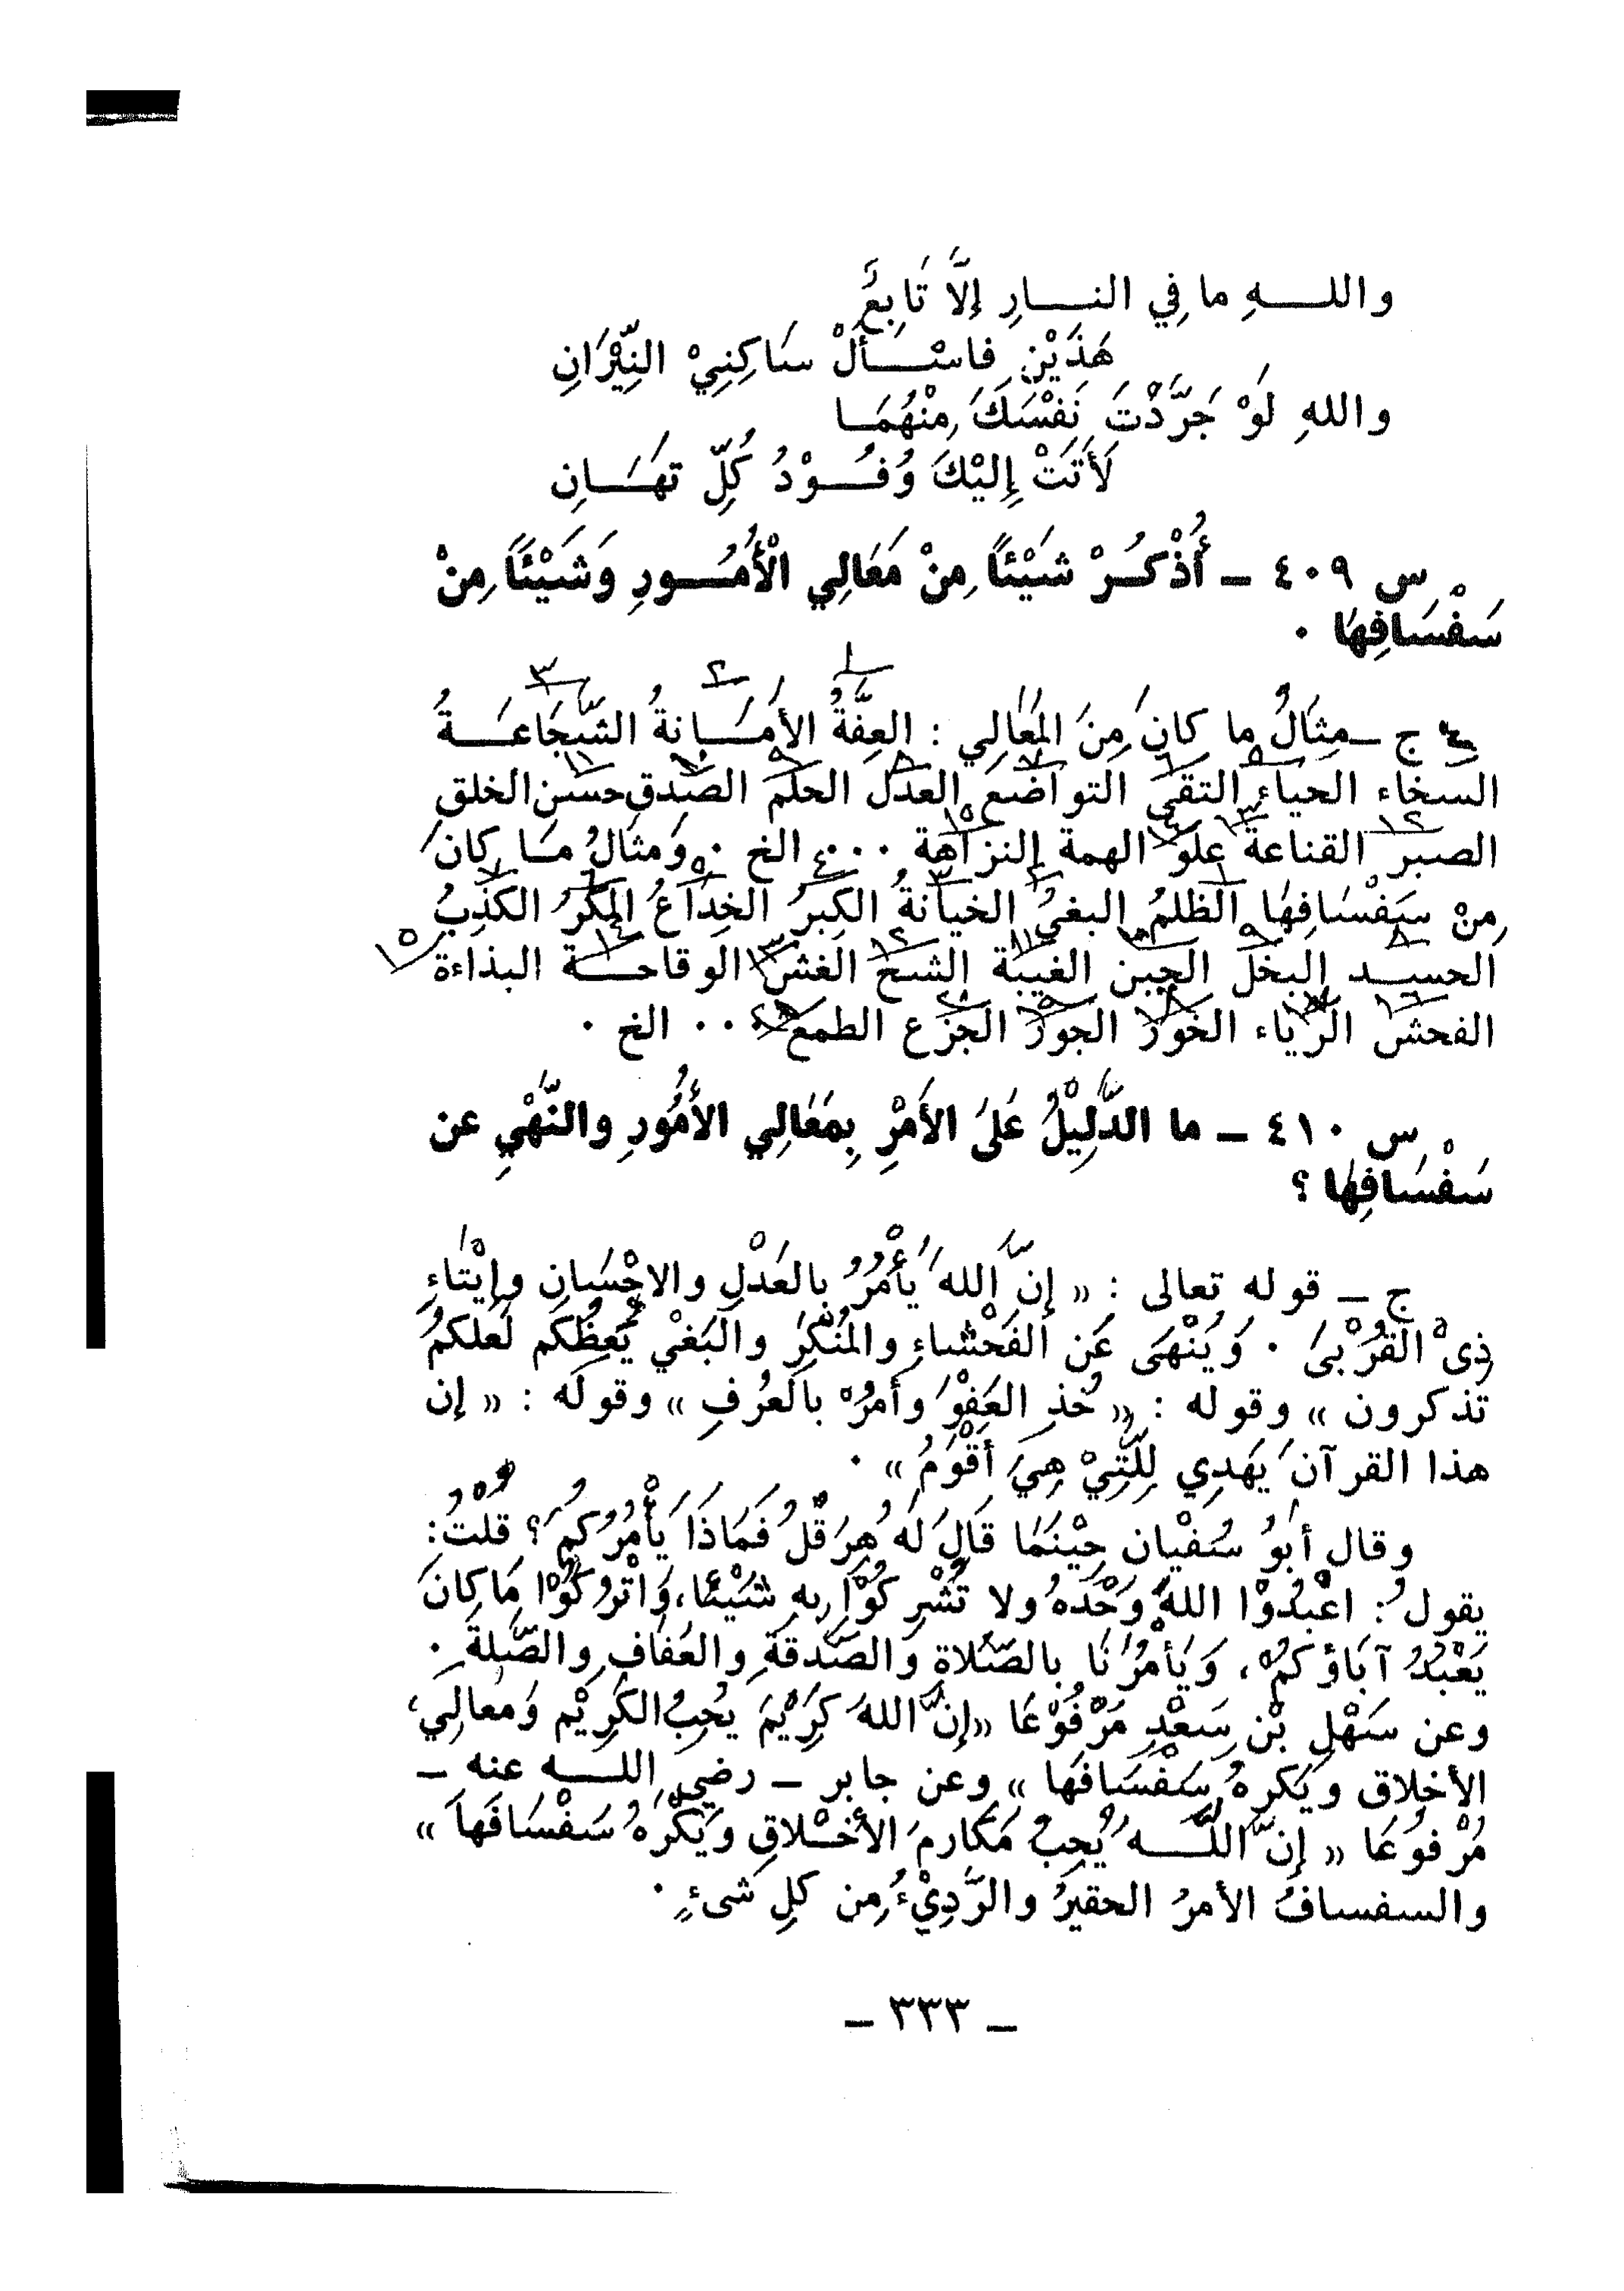 واللـــهِ ما فِي النـــارِ إلَّا تَابِعٌ
هَذَيْنِ فاسْـــأَلْ سَاكِنِيْ النِّيْرَانِ
واللهِ لَوْ جَرَّدْتَ نَفْسَكَ مِنْهُمَـا
لَأَتَتْ إِلَيْكَ وُفُـــوْدُ كُلِّ تهَـــانِ
س ٤٠٩ – أُذْكُـرْ شَيْئاً مِنْ مَعَالِي الْأُمُـــورِ وَشَيْئَاً مِنْ
سَفْسَافِهَا ٠
١ ٢ ٣
ج – مِثَالُ ما كانَ مِنَ المَعَالِي : العِفَّةُ الأمَـــانةُ الشَّجَاعَـــةُ
السخاء الحياء التقى التواضع العدل الحلم الصدق حسن الخلق
الصبر القناعة علو الهمة النزاهة ٠٠٠ الخ ٠ وَمثَالُ مَـا كانَ
مِنْ سَفْسَافِهَا الظلمُ البغيُ الخيانةُ الكِبرُ الخِدَاعُ المكرُ الكذِبُ
الحسـد البخل الجبن الغيبة الشح الغش الوقاحـــة البذاءة
الفحش الرياء الخور الجور الجزع الطمع ٠٠٠ الخ ٠
س ٤١٠ – ما الدَّلِيْلُ عَلىَ الأمْرِ بِمَعَالِي الأُمُورِ والنَّهْيِ عن
سَفْسَافِهَا ؟
ج – قوله تعالى : « إنَّ اللهَ يأْمُرُ بالعَدْلِ والاحْسَانِ وإيْتَاءِ
ذِىْ القُرْبىَ ٠ وَيَنْهَى عَن الفَحْشَاءِ والمُنْكَرِ والبَغيْ يَعِظُكَم لَعلكمُ
تذكرون » وقوله : « خُذِ العَفْوَ وأمُرْ بالعُرْفِ » وقوله : « إن
هذا القرآنَ يَهدِي لِلَّتِيْ هِيَ أَقْوَمُ » ٠
وقال أبوُ سُفْيان حِيْنَمَا قَالَ لَه هِرَقْلُ فَمَاذَا يَأْمُرُكمَ ؟ قُلْتُ :
يقولُ : اعْبُدُوْا اللهَ وَحْدَهُ ولا تُشْرِكُوْا بِهِ شَيْئًا، وَاتْرُكُوْا مَا كانَ
يَعْبُدُ آبَاؤكمُ، وَيَأمُرُنَا بالصَّلاةِ وَالصَّدقَةِ والعَفافِ والصَّلةِ ٠
وعن سَهْلِ بْنِ سَعْدٍ مَرْفُوْعَا «إنَّ اللهَ كَرِيْمَ يُحِبُ الكَرِيْم وَمعالِيَ
الأخلاق ويَكرهُ سَفْسَافَها » وعن جابر – رضي اللـــه عنه –
مَرْفوعَا « إنَّ اللـــهَ يُحِبُ مَكارِمَ الأخْـلاقِ وَيَكْرَهُ سَفْسَافَهاَ »
والسفسافُ الأمرُ الحقيرُ والرَّدِيْءُ مِن كلِ شىءٍ ٠
– ٣٣٣ –